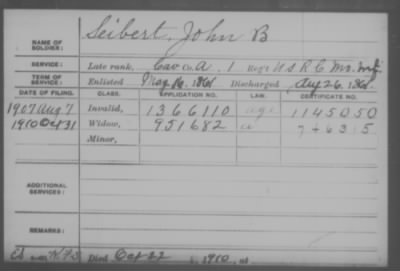 NAME OF SOLDIER: Seibert, John B
SERVICE: Late rank, Cav Co. A. 1 Reg't U S R C Mo. Inf.
TERM OF SERVICE: Enlisted May 1861. Discharged Aug 26. 1861.
DATE OF FILING. CLASS. APPLICATION NO. LAW. CERTIFICATE NO.
1907 Aug 7 Invalid, 1366110 1145050
1910 Oct 31 Widow, 951682 746315
Minor,
ADDITIONAL SERVICES:
REMARKS:
Died Oct 22, 1910, at